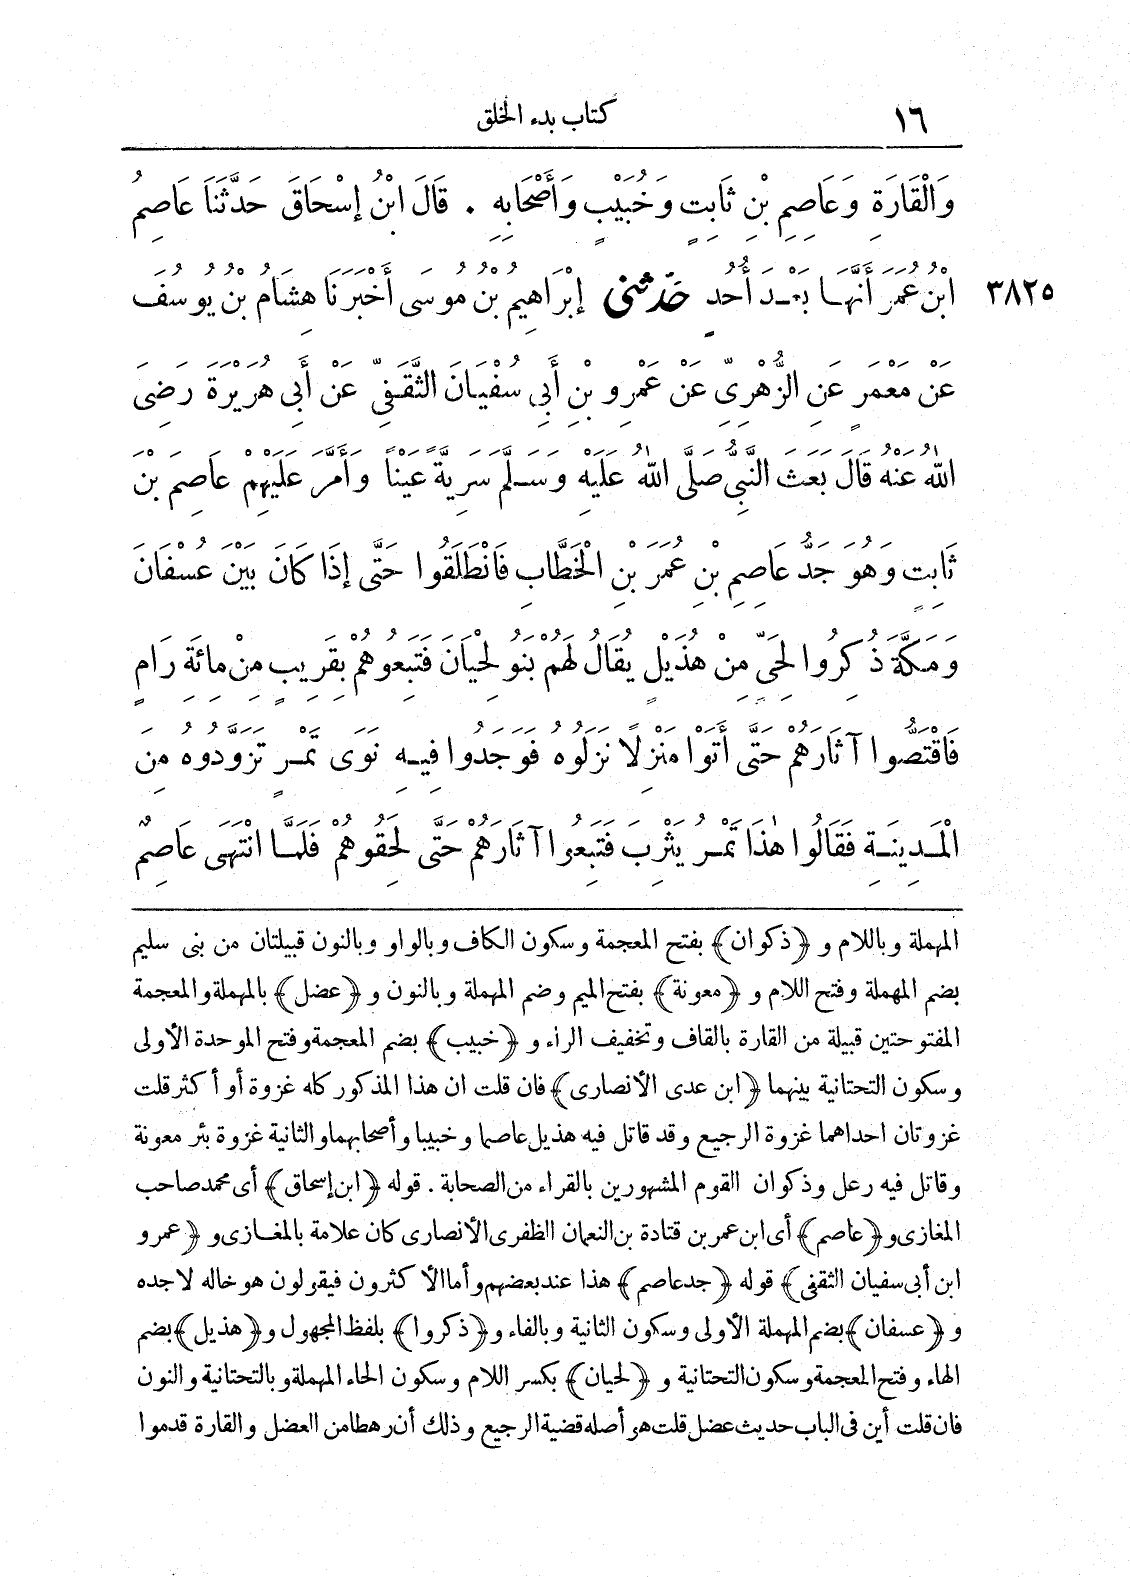 ١٦
كتاب بدء الخلق
وَالْقَارَةِ وَعَاصِمِ بْنِ ثَابِتٍ وَخُبَيْبٍ وَأَصْحَابِهِ . قَالَ ابْنُ إِسْحَاقَ حَدَّثَنَا عَاصِمُ
ابْنُ عُمَرَ أَنَّهَا بَعْدَ أُحُدٍ حَدَّثَنِي إِبْرَاهِيمُ بْنُ مُوسَى أَخْبَرَنَا هِشَامُ بْنُ يُوسُفَ
٣٨٢٥
عَنْ مَعْمَرٍ عَنِ الزُّهْرِيِّ عَنْ عَمْرِو بْنِ أَبِي سُفْيَانَ الثَّقَفِيِّ عَنْ أَبِي هُرَيْرَةَ رَضِيَ
اللهُ عَنْهُ قَالَ بَعَثَ النَّبِيُّ صَلَّى اللهُ عَلَيْهِ وَسَلَّمَ سَرِيَّةً عَيْنًا وَأَمَّرَ عَلَيْهِمْ عَاصِمَ بْنَ
ثَابِتٍ وَهُوَ جَدُّ عَاصِمِ بْنِ عُمَرَ بْنِ الْخَطَّابِ فَانْطَلَقُوا حَتَّى إِذَا كَانَ بَيْنَ عُسْفَانَ
وَمَكَّةَ ذُكِرُوا لِحَيٍّ مِنْ هُذَيْلٍ يُقَالُ لَهُمْ بَنُو لِحْيَانَ فَتَبِعُوهُمْ بِقَرِيبٍ مِنْ مِائَةِ رَامٍ
فَاقْتَصُّوا آثَارَهُمْ حَتَّى أَتَوْا مَنْزِلًا نَزَلُوهُ فَوَجَدُوا فِيهِ نَوَى تَمْرٍ تَزَوَّدُوهُ مِنَ
الْمَدِينَةِ فَقَالُوا هٰذَا تَمْرُ يَثْرِبَ فَتَبِعُوا آثَارَهُمْ حَتَّى لَحِقُوهُمْ فَلَمَّا انْتَهَى عَاصِمٌ
المهملة وباللام و ﴿ذكوان﴾ بفتح المعجمة وسكون الكاف وبالواو وبالنون قبيلتان من بنى سليم
بضم المهملة وفتح اللام و ﴿معونة﴾ بفتح الميم وضم المهملة وبالنون و ﴿عضل﴾ بالمهملة والمعجمة
المفتوحتين قبيلة من القارة بالقاف وتخفيف الراء و ﴿خبيب﴾ بضم المعجمة وفتح الموحدة الأولى
وسكون التحتانية بينهما ﴿ابن عدى الأنصارى﴾ فان قلت ان هذا المذكور كله غزوة أو أكثر قلت
غزوتان احداهما غزوة الرجيع وقد قاتل فيه هذيل عاصما وخبيبا وأصحابهما والثانية غزوة بئر معونة
وقاتل فيه رعل وذكوان القوم المشهورين بالقراء من الصحابة . قوله ﴿ابن إسحاق﴾ أى محمد صاحب
المغازى و﴿عاصم﴾ أى ابن عمر بن قتادة بن النعمان الظفرى الأنصارى كان علامة بالمغازى و ﴿عمرو
ابن أبى سفيان الثقفى﴾ قوله ﴿جد عاصم﴾ هذا عند بعضهم وأما الأكثرون فيقولون هو خاله لا جده
و ﴿عسفان﴾ بضم المهملة الأولى وسكون الثانية وبالفاء و﴿ذكروا﴾ بلفظ المجهول و﴿هذيل﴾ بضم
الهاء وفتح المعجمة وسكون التحتانية و ﴿لحيان﴾ بكسر اللام وسكون الحاء المهملة وبالتحتانية والنون
فان قلت أين فى الباب حديث عضل قلت هو أصله قضية الرجيع وذلك أن رهطا من العضل والقارة قدموا